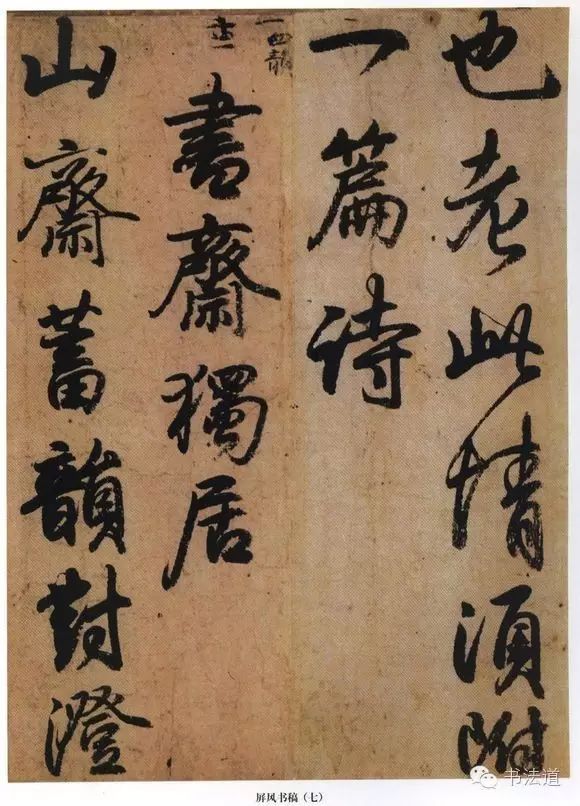 也老此情須附
一篇詩
一四韻
書齋獨居
山齋蓄韻對澄
书法道
屏风书稿（七）